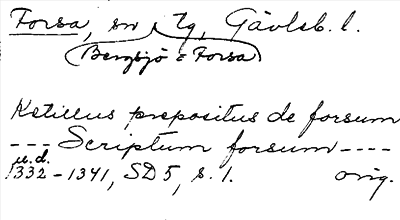 Forsa, sn o Tg, Gävleb. l.
(Bergsjö o Forsa)
Ketillus prepositus de forsum
--- Scriptum forsum ----
u.d.
1332-1341, SD 5, s. 1. orig.